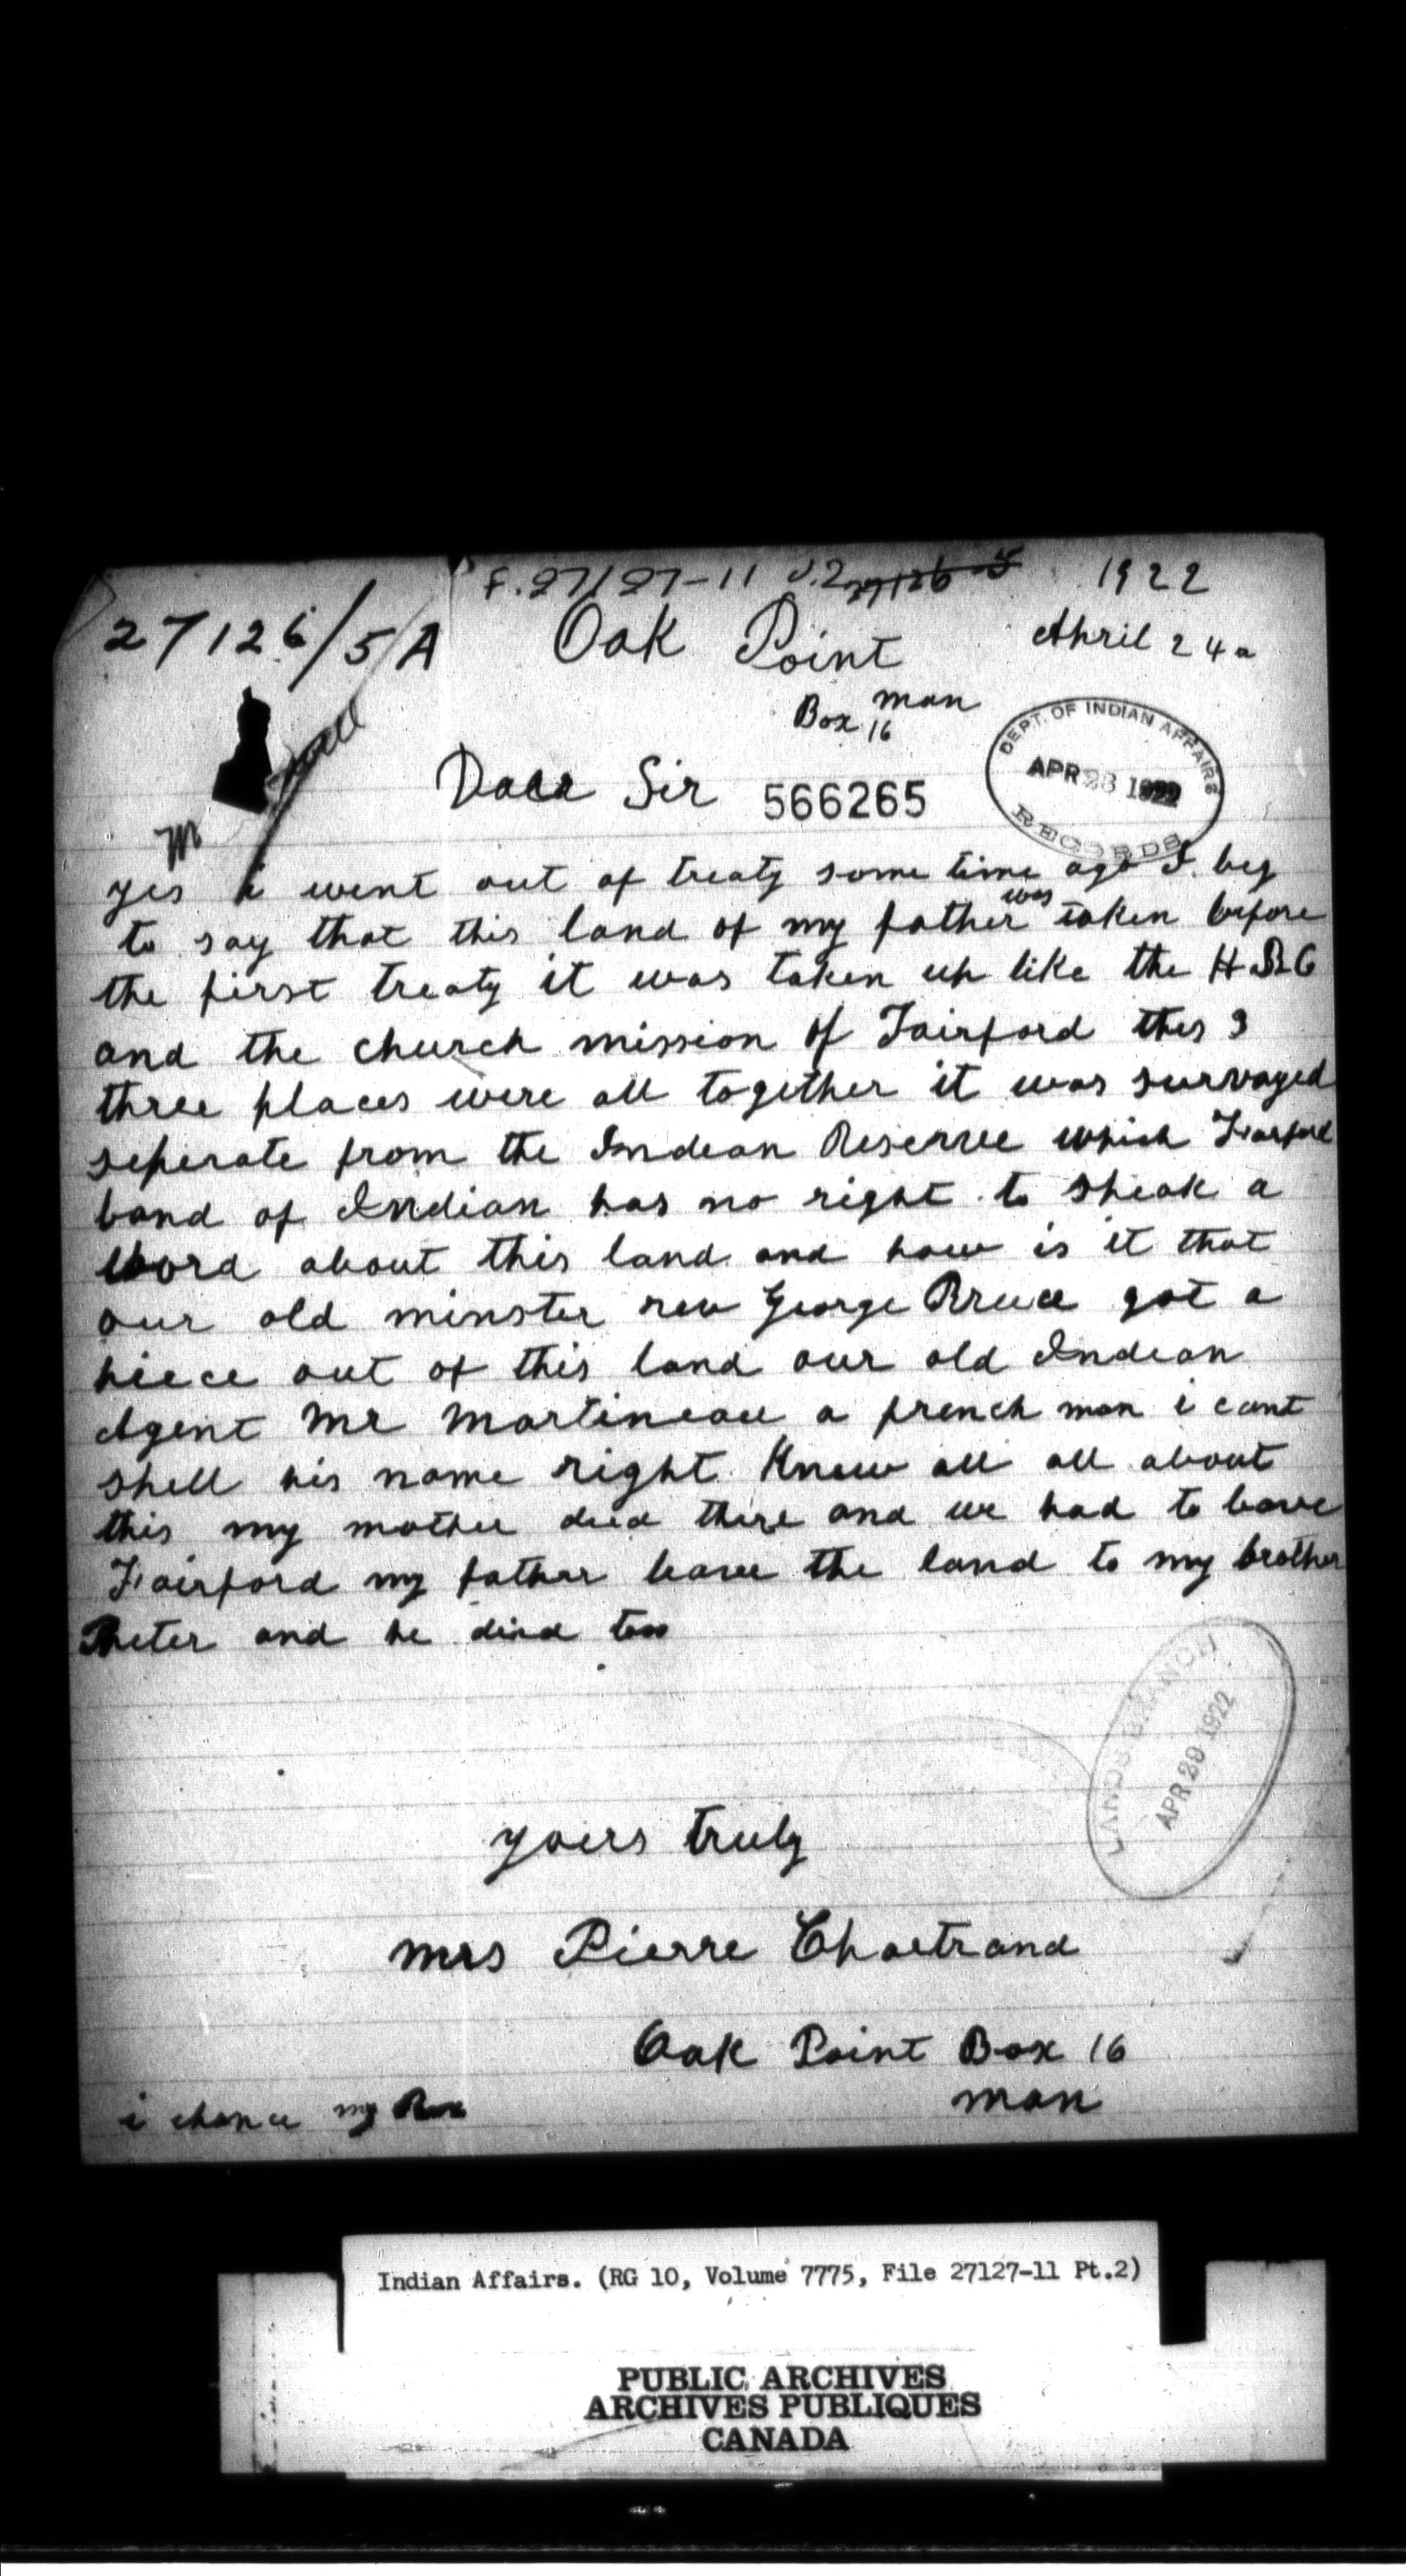 F. 27127-11 27126-5 1922
27126/5A Oak Point April 24
man
Box 16
DEPT. OF INDIAN AFFAIRS
APR 28 1922
RECORDS
Dear Sir 566265
yes i went out of treaty some time ago I beg
to say that this land of my father was taken before
the first treaty it was taken up like the H.B.C
and the church mission of Fairford this 3
three places were all together it was survayed
seperate from the Indean Reserve which Fairford
band of Indian has no right to speak a
word about this land and how is it that
our old minster rev George Bruce got a
piece out of this land our old Indean
Agent Mr Martineau a french man i cant
spell his name right Knew all all about
this my mother died there and we had to leave
Fairford my father leave the land to my brother
Peter and he died too
LANDS BRANCH
APR 29 1922
yours truly
Mrs Pierre Chartrand
Oak Point Box 16
man
i chance my Box
Indian Affairs. (RG 10, Volume 7775, File 27127-11 Pt.2)
PUBLIC ARCHIVES
ARCHIVES PUBLIQUES
CANADA